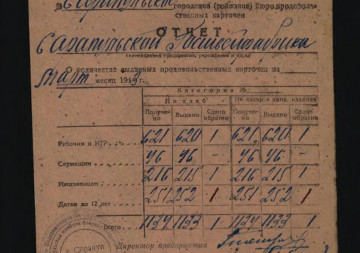 городское (районное) Бюро продоволь-
ственных карточек
ОТЧЕТ
Сарапульской
(наименование предприятия, учреждения и дома)
о количестве выданных продовольственных карточек на
Март месяц 194 г.
Категория №
На хлеб На сахар и конд. изделия
Получено Выдано Сдано обратно Получено Выдано Сдано обратно
Рабочие и ИТР 621 620 1 621 620 1
Служащие 46 46 – 46 46 –
Иждивенцы 216 215 1 216 215 1
Детям до 12 лет 251 252 1 251 252 1
Всего: 1134 1133 1 1134 1133 1
Директор предприятия